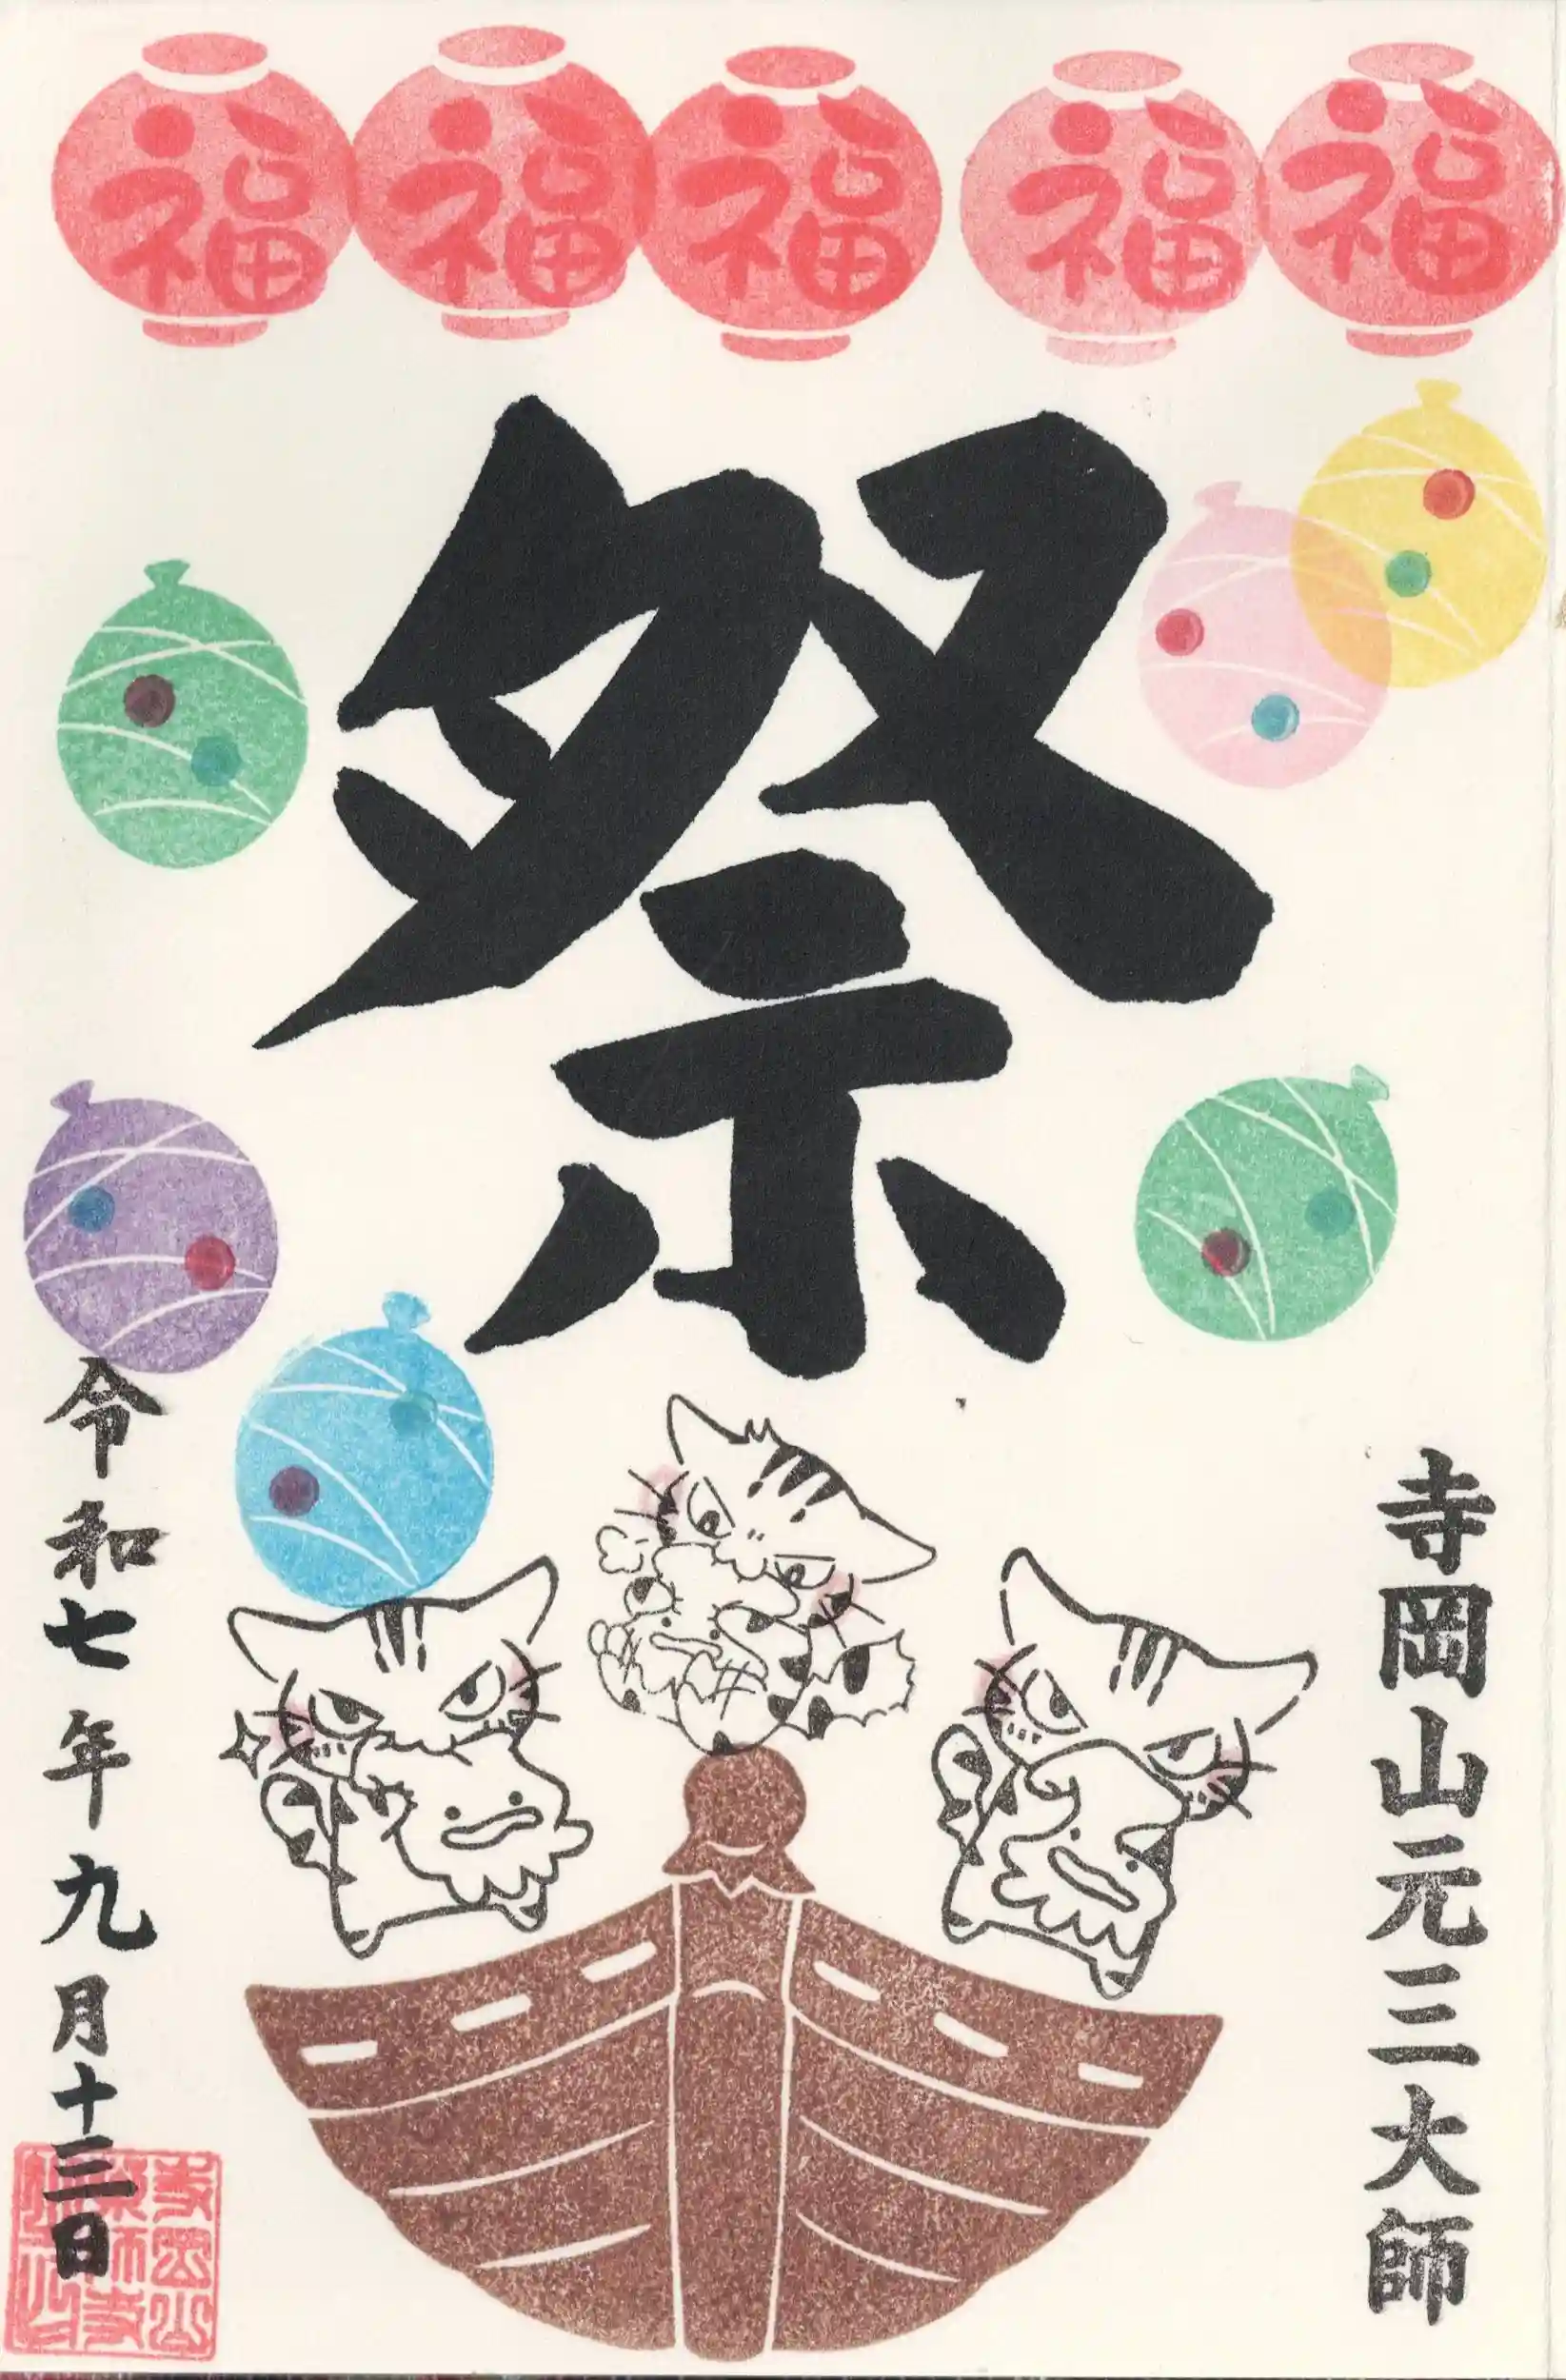 福福福福福
祭
寺岡山元三大師
令和七年九月十三日